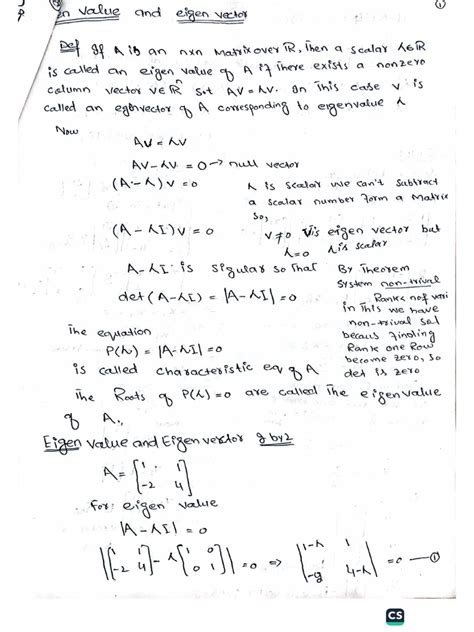 en value and eigen vector
①
Def If A is an nxn Matrix over ℝ, Then a scalar λ∈ℝ
is called an eigen value of A if There exists a nonzero
column vector v∈ℝⁿ s.t AV=λV. In This case v is
called an egenvector of A corresponding to eigenvalue λ
Now
AV = λV
AV-λV = 0 → null vector
(A-λ)v = 0
λ is scalar we can't subtract
a scalar number form a Matrix
so,
(A-λI)v = 0
v≠0 V is eigen vector but
λ=0 λ is scalar
A-λI is sigular so That
det(A-λI) = |A-λI| = 0
By Theorem
System non-trival
Rank< no of vari
in This we have
non-trival sol
becaus finding
Rank one Row
become zero, so
det is zero
The equation
P(λ) = |A-λI| = 0
is called characteristic eq of A
The Roots of P(λ)=0 are called The eigenvalue
of A.
Eigen value and Eigen verctor 2 by 2
A = [1 1
-2 4]
for eigen value
|A-λI| = 0
|[1 1 -2 4] - λ[1 0 0 1]| = 0 ⇒ |1-λ 1 4-λ| = 0 — ①
CS